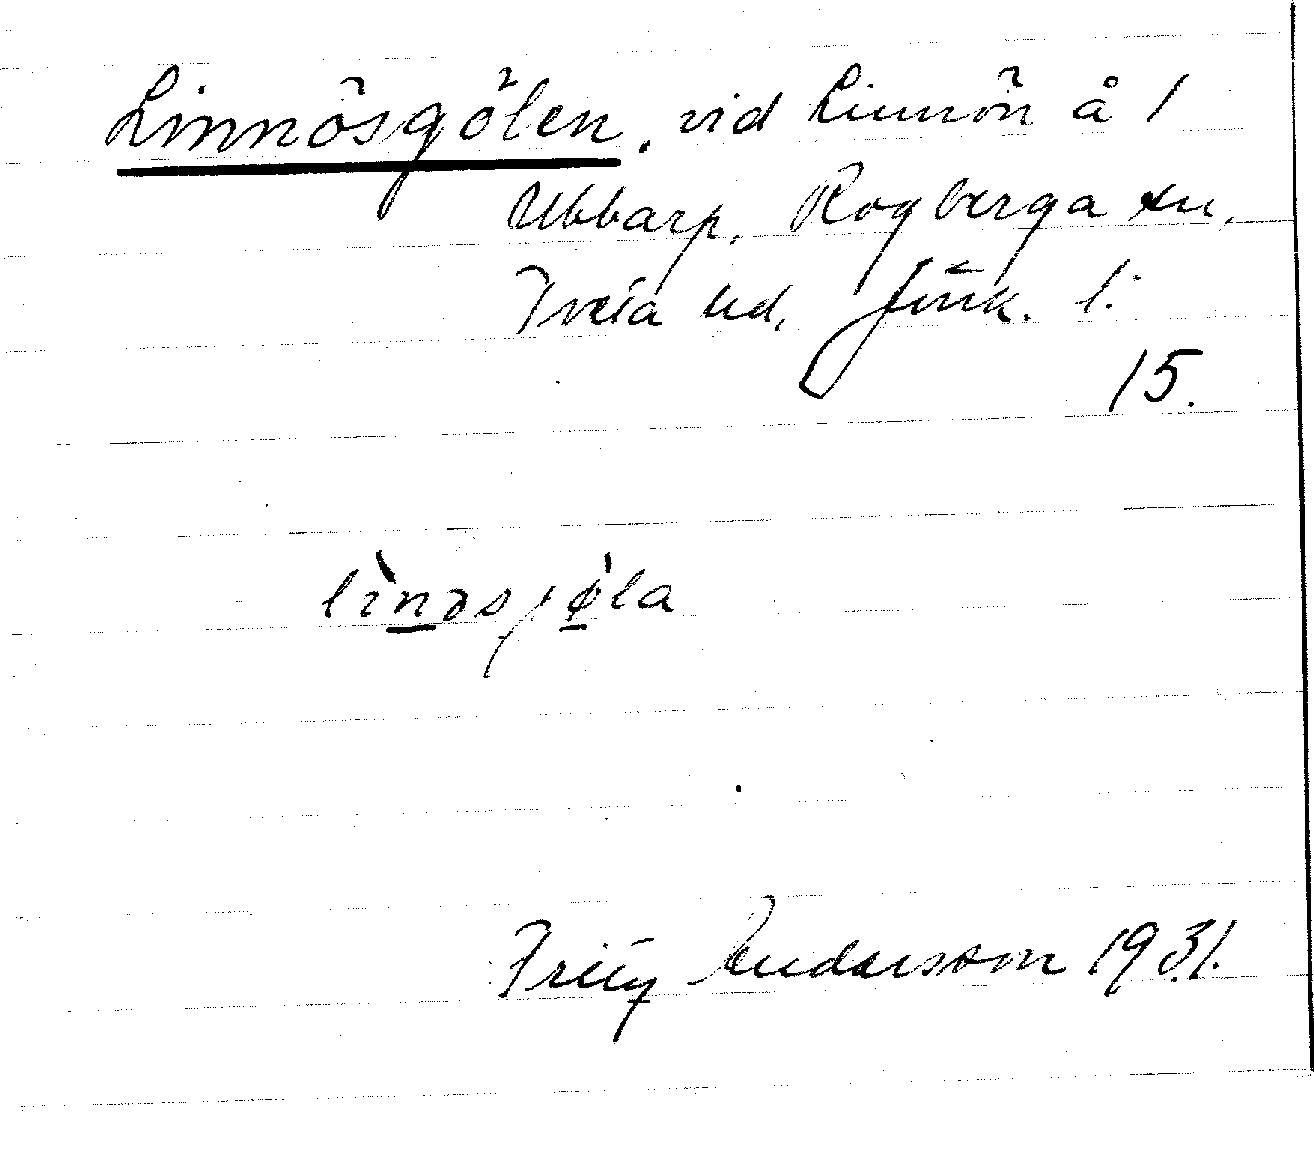 Linnösgölen, vid Linnön å 1
Ubbarp, Rogberga sn,
Tveta hd, Jönk. l.
15.
lìnəsjø̀la
Fritz Andersson 1931.